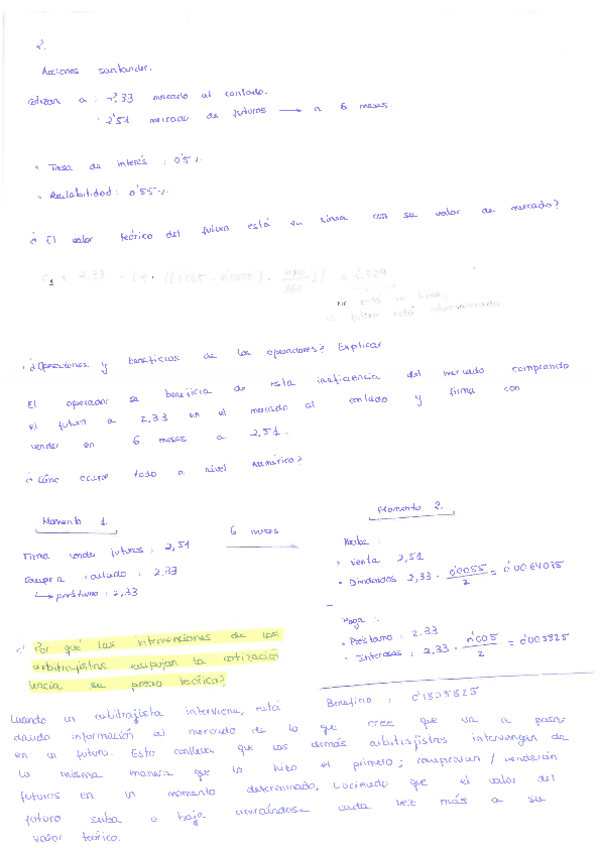 2.
Acciones santander.
cotizan a : 2'33 mercado al contado.
2'51 mercado de futuros → a 6 meses.
• Tasa de interés : 0'5%
• Rentabilidad : 0'55%
¿ El valor teórico del futuro está en línea con su valor de mercado?
= 2,33 · (1 + ((0'005 - 0'0055) · 180/360)) = 2,329
no está en línea,
el futuro está sobrevalorado
¿Operaciones y beneficios de los operadores? Explicar
El operador se beneficia de esta ineficiencia del mercado comprando
el futuro a 2,33 en el mercado al contado y firma con
vender en 6 meses a 2,51.
¿ Cómo ocurre todo a nivel numérico?
Momento 1.
6 meses
Momento 2.
Firma vender futuros : 2,51
Compra contado : 2.33
→ préstamo : 2,33
Recibe :
• Venta 2,51
• Dividendos 2,33 · 0'0055/2 = 0'0064075
Paga :
• Préstamo : 2.33
• Intereses : 2,33 · 0'005/2 = 0'005825
Beneficio :
¿ Por qué las intervenciones de los
arbitrajistas empujan la cotización
hacia su precio teórico?
Cuando un arbitrajista interviene, está
dando información al mercado de lo que cree que va a pasar
en un futuro. Esto conlleva que los demás arbitrajistas intervengan de
la misma manera que lo hizo el primero; comprarán / venderán
futuros en un momento determinado, haciendo que el valor del
futuro suba o baje acercándose cada vez más a su
valor teórico.